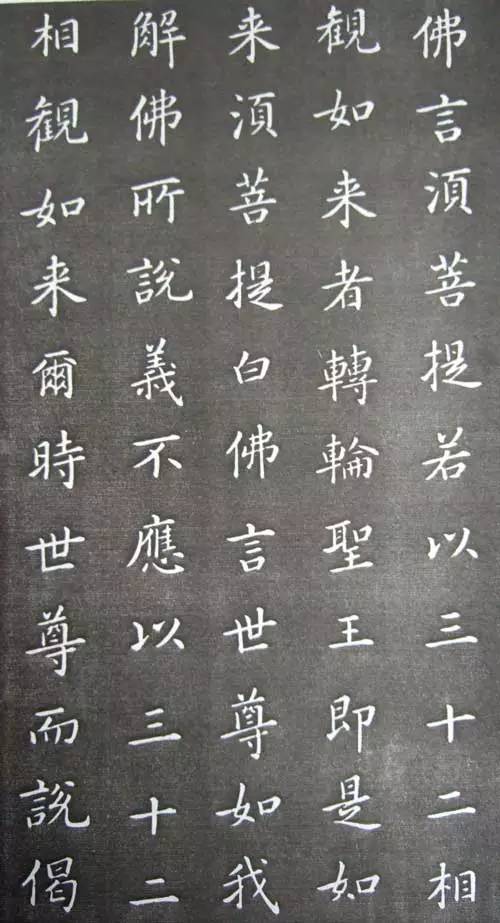 佛言湏菩提若以三十二相
観如来者轉輪聖王即是如
来湏菩提白佛言世尊如我
解佛所説義不應以三十二
相観如来爾時世尊而説偈